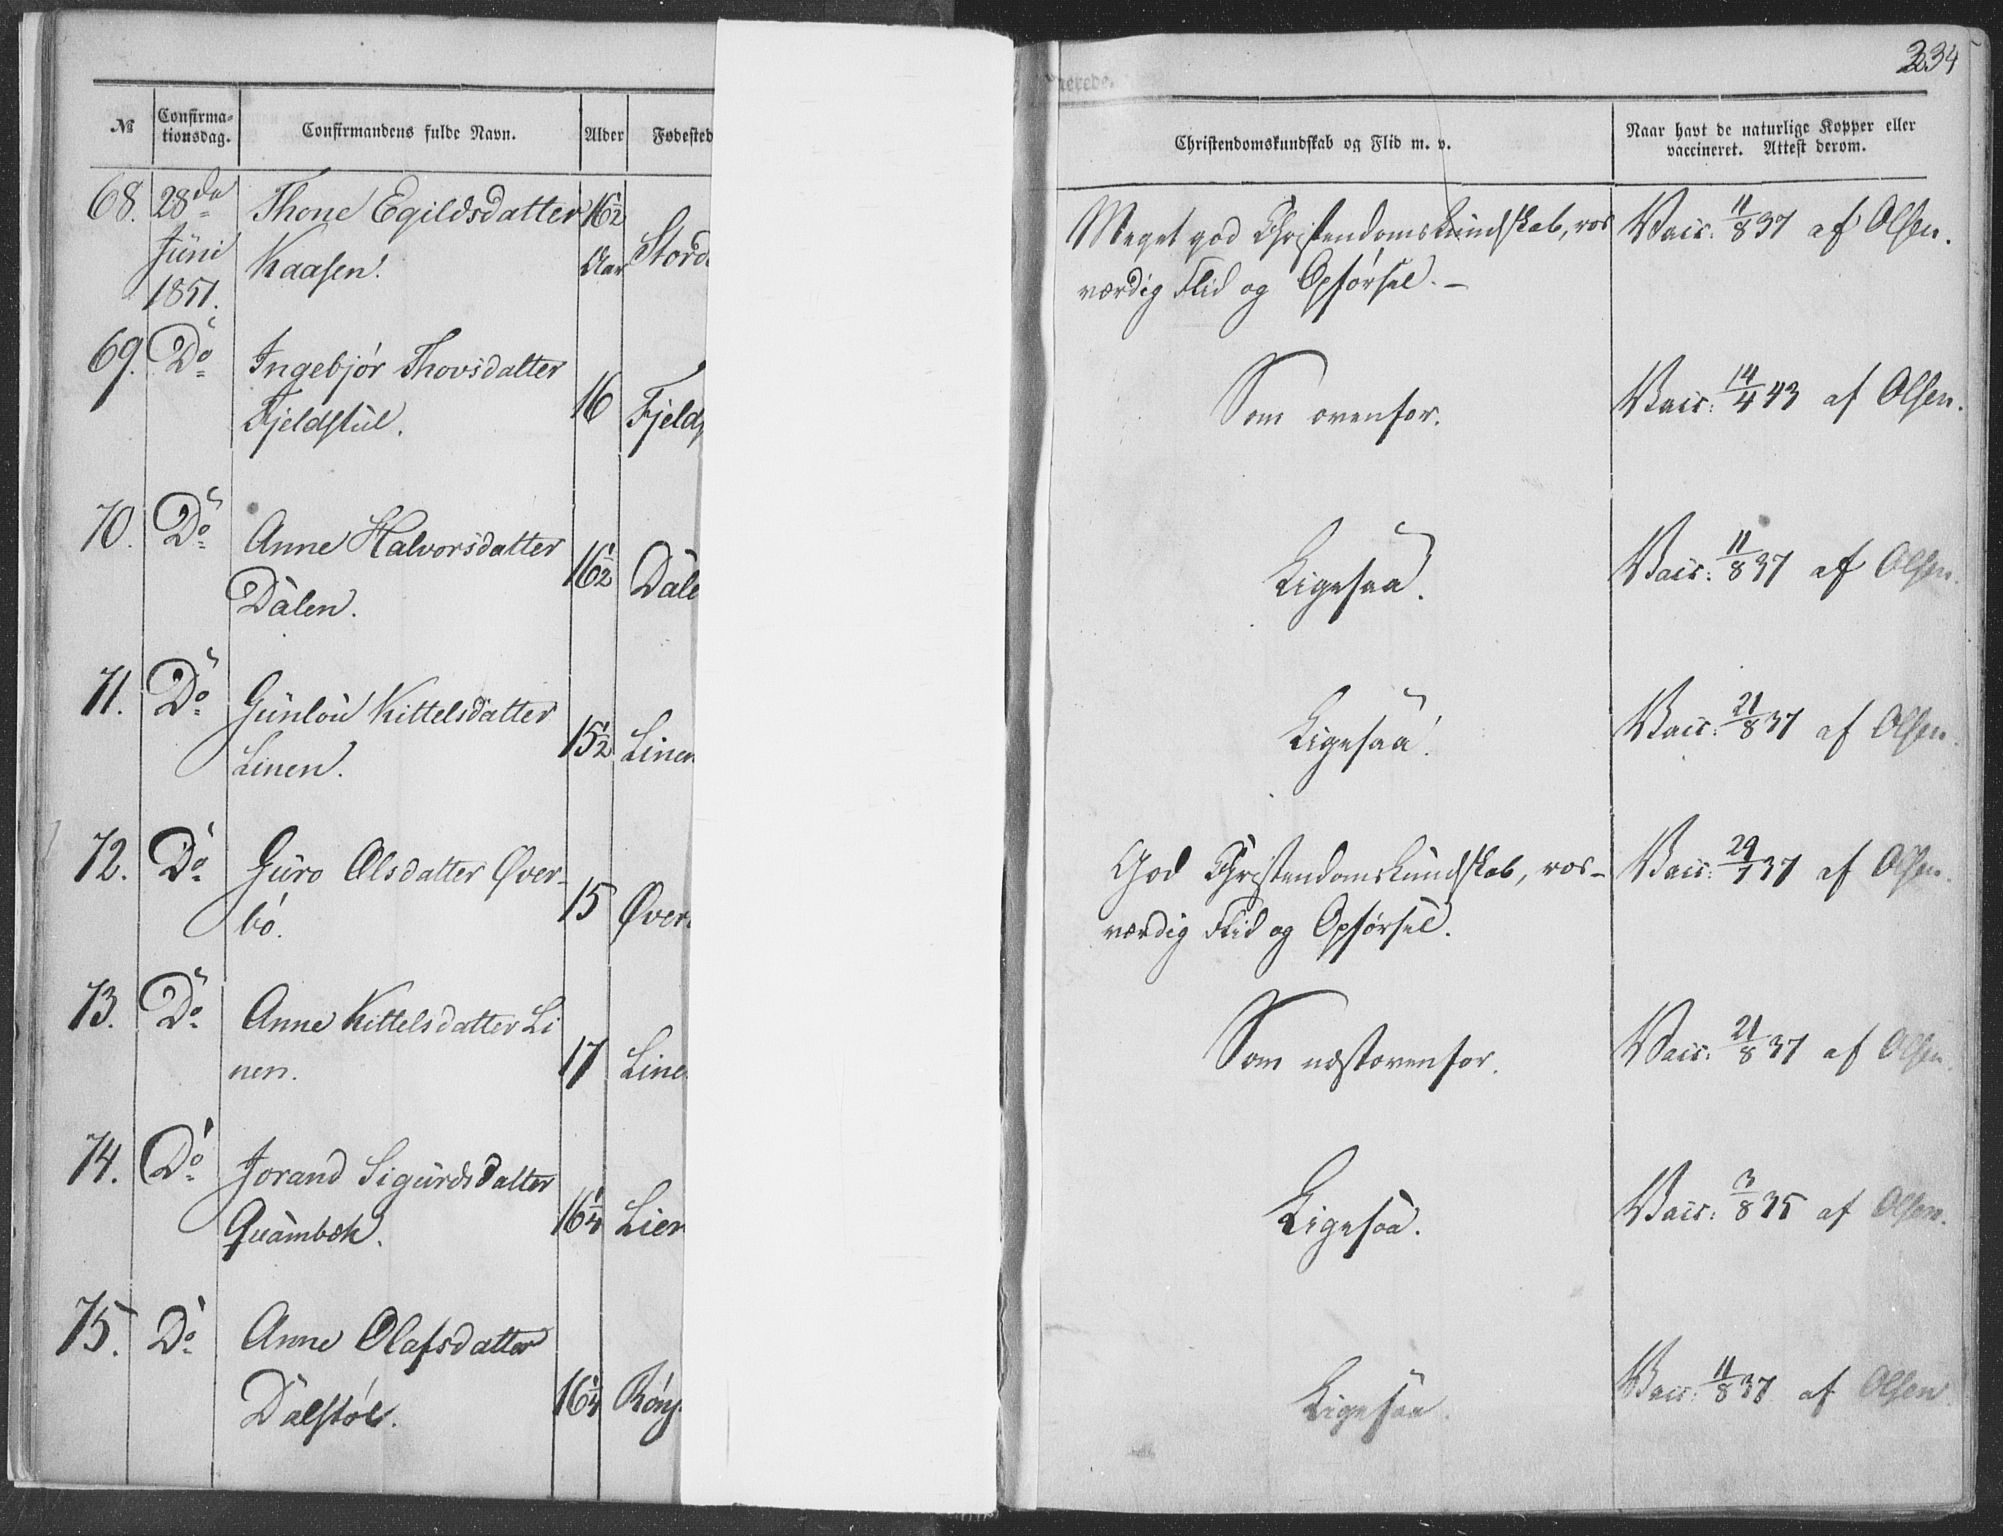 234
№ Confirma-tionsdag. Confirmandens fulde Navn. Alder Fødested
Christendomskundskab og Flid m. v. Naar havt de naturlige Kopper eller vaccineret. Attest derom.
68. 28de Thone Egildsdatter 16½
Juni Kaasen. Aar Stord
1851.
Meget god Christendomskundskab, ros
værdig Flid og Opførsel. —
Vacc: 11/8 37 af Olsen.
69. Do Ingebjør Thovsdatter
Fjeldstul. 16 Fjelds
Som ovenfor. Vacc: 14/4 43 af Olsen.
70. Do Anne Halvorsdatter
Dalen. 16½ Dale
Ligesaa. Vacc: 11/8 37 af Olsen.
71. Do Gunlou Kittelsdatter
Linen. 15½ Linen
Ligesaa. Vacc: 21/8 37 af Olsen.
72. Do Guro Olsdatter Øver-
bø. 15 Øver
God Christendomskundskab, ros-
værdig Flid og Opførsel.
Vacc: 29/7 37 af Olsen.
73. Do Anne Kittelsdatter Li
nen. 17 Line
Som næstovenfor. Vacc: 21/8 37 af Olsen.
74. Do Jorand Sigurdsdatter
Quambæk. 16¼ Lier
Ligesaa. Vacc: 3/8 35 af Olsen.
75. Do Anne Olafsdatter
Dalstøl. 16¼ Rønj
Ligesaa. Vacc: 11/8 37 af Olsen.